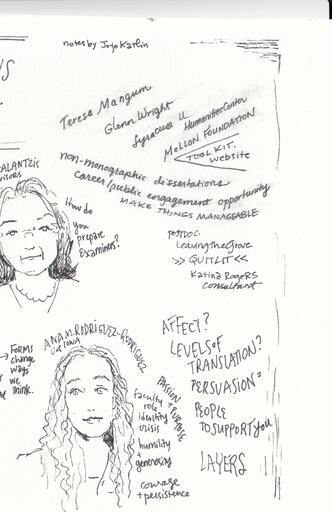 notes by Jojo Karlin
Teresa Mangum
Glenn Wright
Syracuse U Humanities Center
MELLON FOUNDATION
TOOLKIT.
website
non-monographic dissertations
career/public engagement opportunity
MAKE THINGS MANAGEABLE
How do
you
prepare
examiners?
POSTDOC.
Leaving the Grove
>> QUIT LIT <<
Katina RogeRS
consultant
→ FORMS
change
ways
we
think.
ANA M. RODRIGUEZ-RODRIGUEZ
U of IOWA
PASSION + PURPOSE
faculty
role
identity
crisis
humility
+
generosity
courage
+ persistence
AFFECT?
LEVELS of
TRANSLATION?
PERSUASION?
PEOPLE
TO SUPPORT you
LAYERS